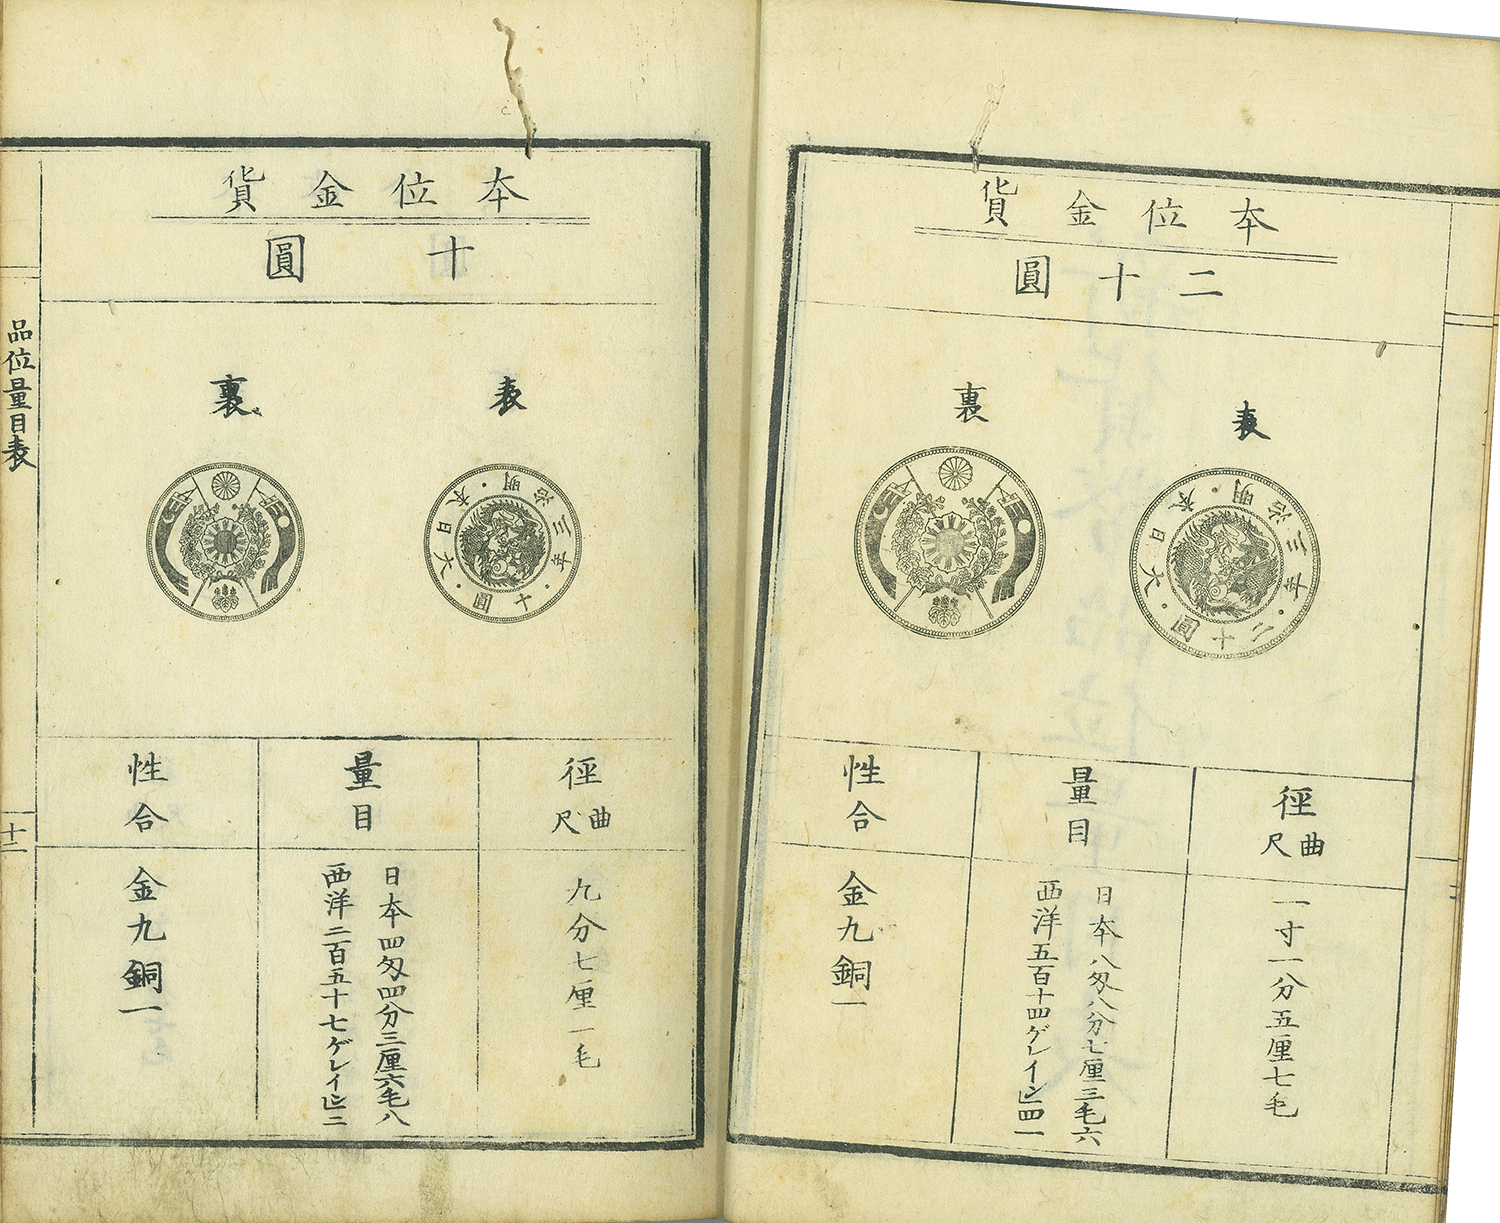 本位金貨
二十圓
表
大日本・明治三年・二十圓・
裏
徑
曲尺
一寸一分五厘七毛
量目
日本八匁八分七厘三毛六
西洋五百十四ゲレイン四一
性合
金九銅一
本位金貨
十圓
表
大日本・明治三年・十圓・
裏
徑
曲尺
九分七厘一毛
量目
日本四匁四分三厘六毛八
西洋二百五十七ゲレイン二
性合
金九銅一
品位量目表
十二